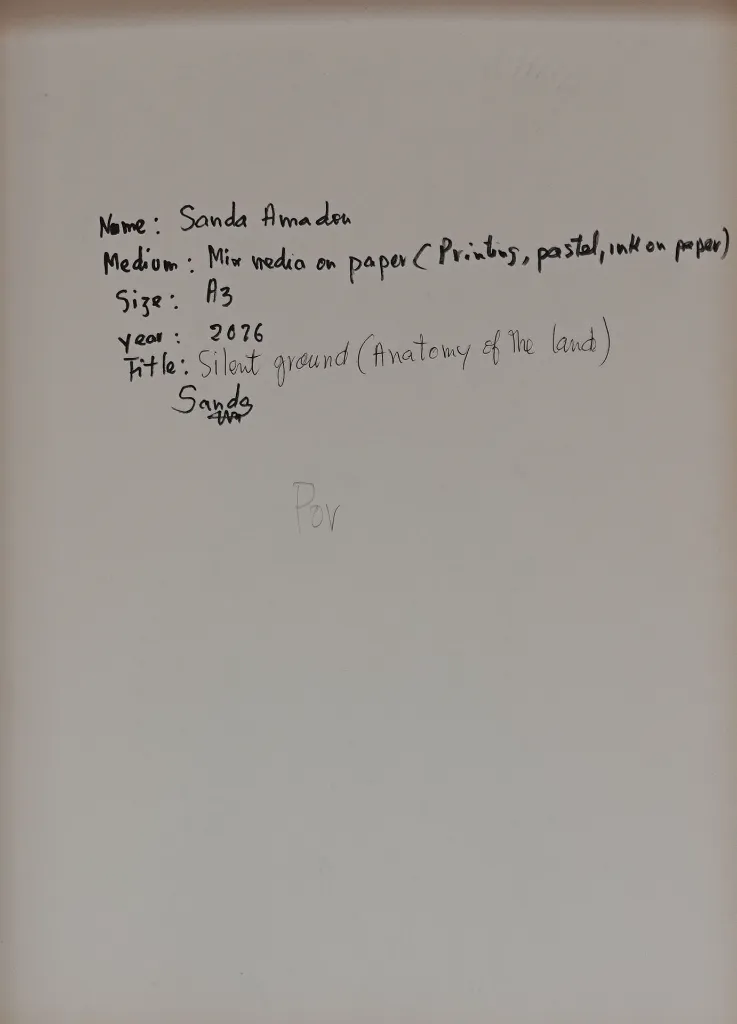 Name: Sanda Amadou
Medium: Mix media on paper (Printing, pastel, ink on paper)
Size: A3
year: 2026
Title: Silent ground (Anatomy of The land)
Sanda
Por